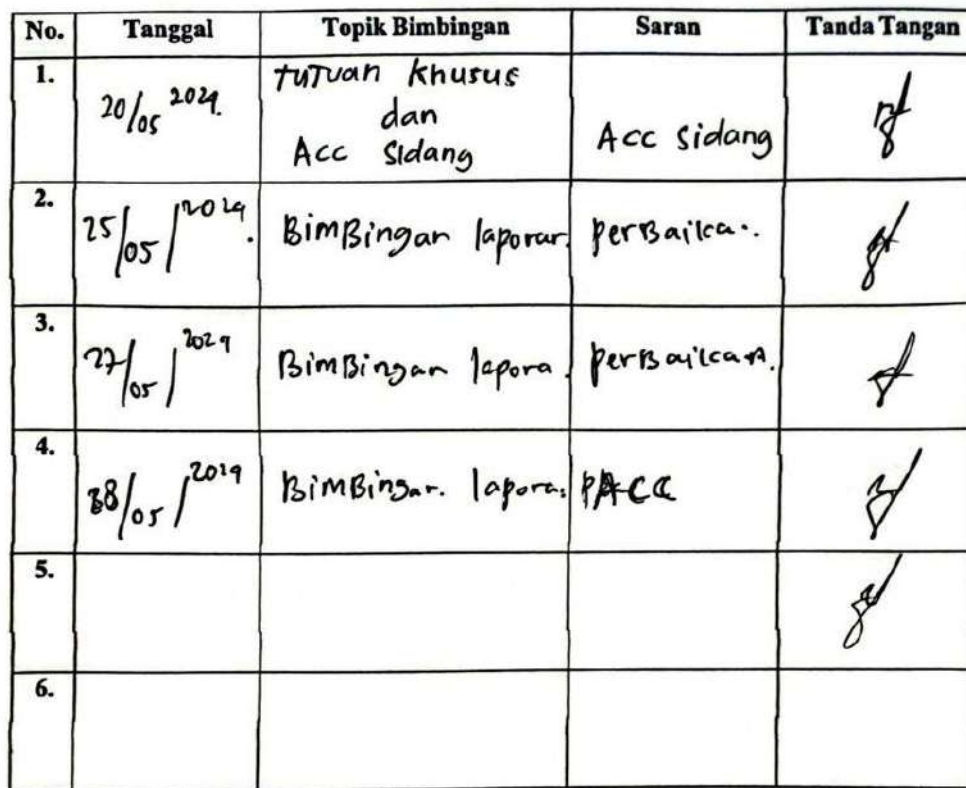 No. Tanggal Topik Bimbingan Saran Tanda Tangan
1. 20/05 2024. tuTuan khusus
dan
Acc Sidang Acc sidang
2. 25/05/2024. BimBingan laporan perBaika..
3. 27/05/2024 BimBingan lapora. perBaikan.
4. /05/2024 BimBingan. lapora. ACC
5.
6.